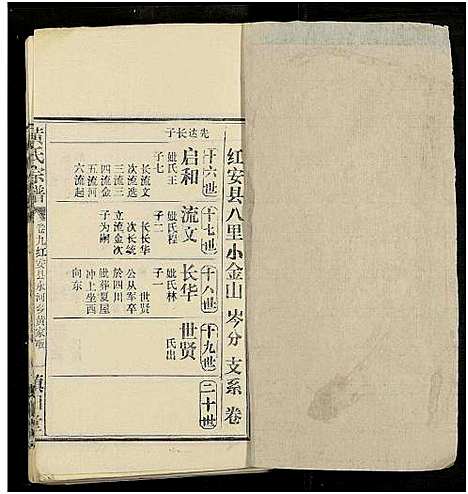 红安县八里小金山岑分支系卷
先达长子
十六世
启和
妣氏王
子七
长流文
次流选
三流三
四流金
五流河
六流起
十七世
流文
妣氏程
子二
长长华
次长统
立流金次
子为嗣
十八世
长华
妣氏林
子一
世贤
公从军卒
於四川
妣葬夏屋
冲上坐西
向东
十九世
世贤
氏出
二十世
黄氏宗谱
卷九红安县永河乡黄家